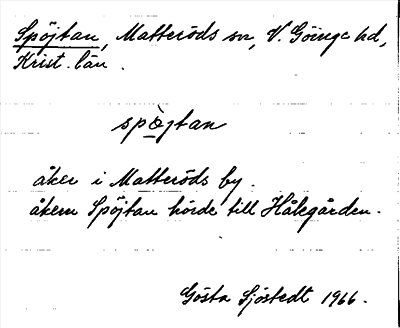 Spöjtan, Matteröds sn, V. Göinge hd,
Krist. län.
spœ̀jtan
åker i Matteröds by.
åkern Spöjtan hörde till Hålegården.
Gösta Sjöstedt 1966.